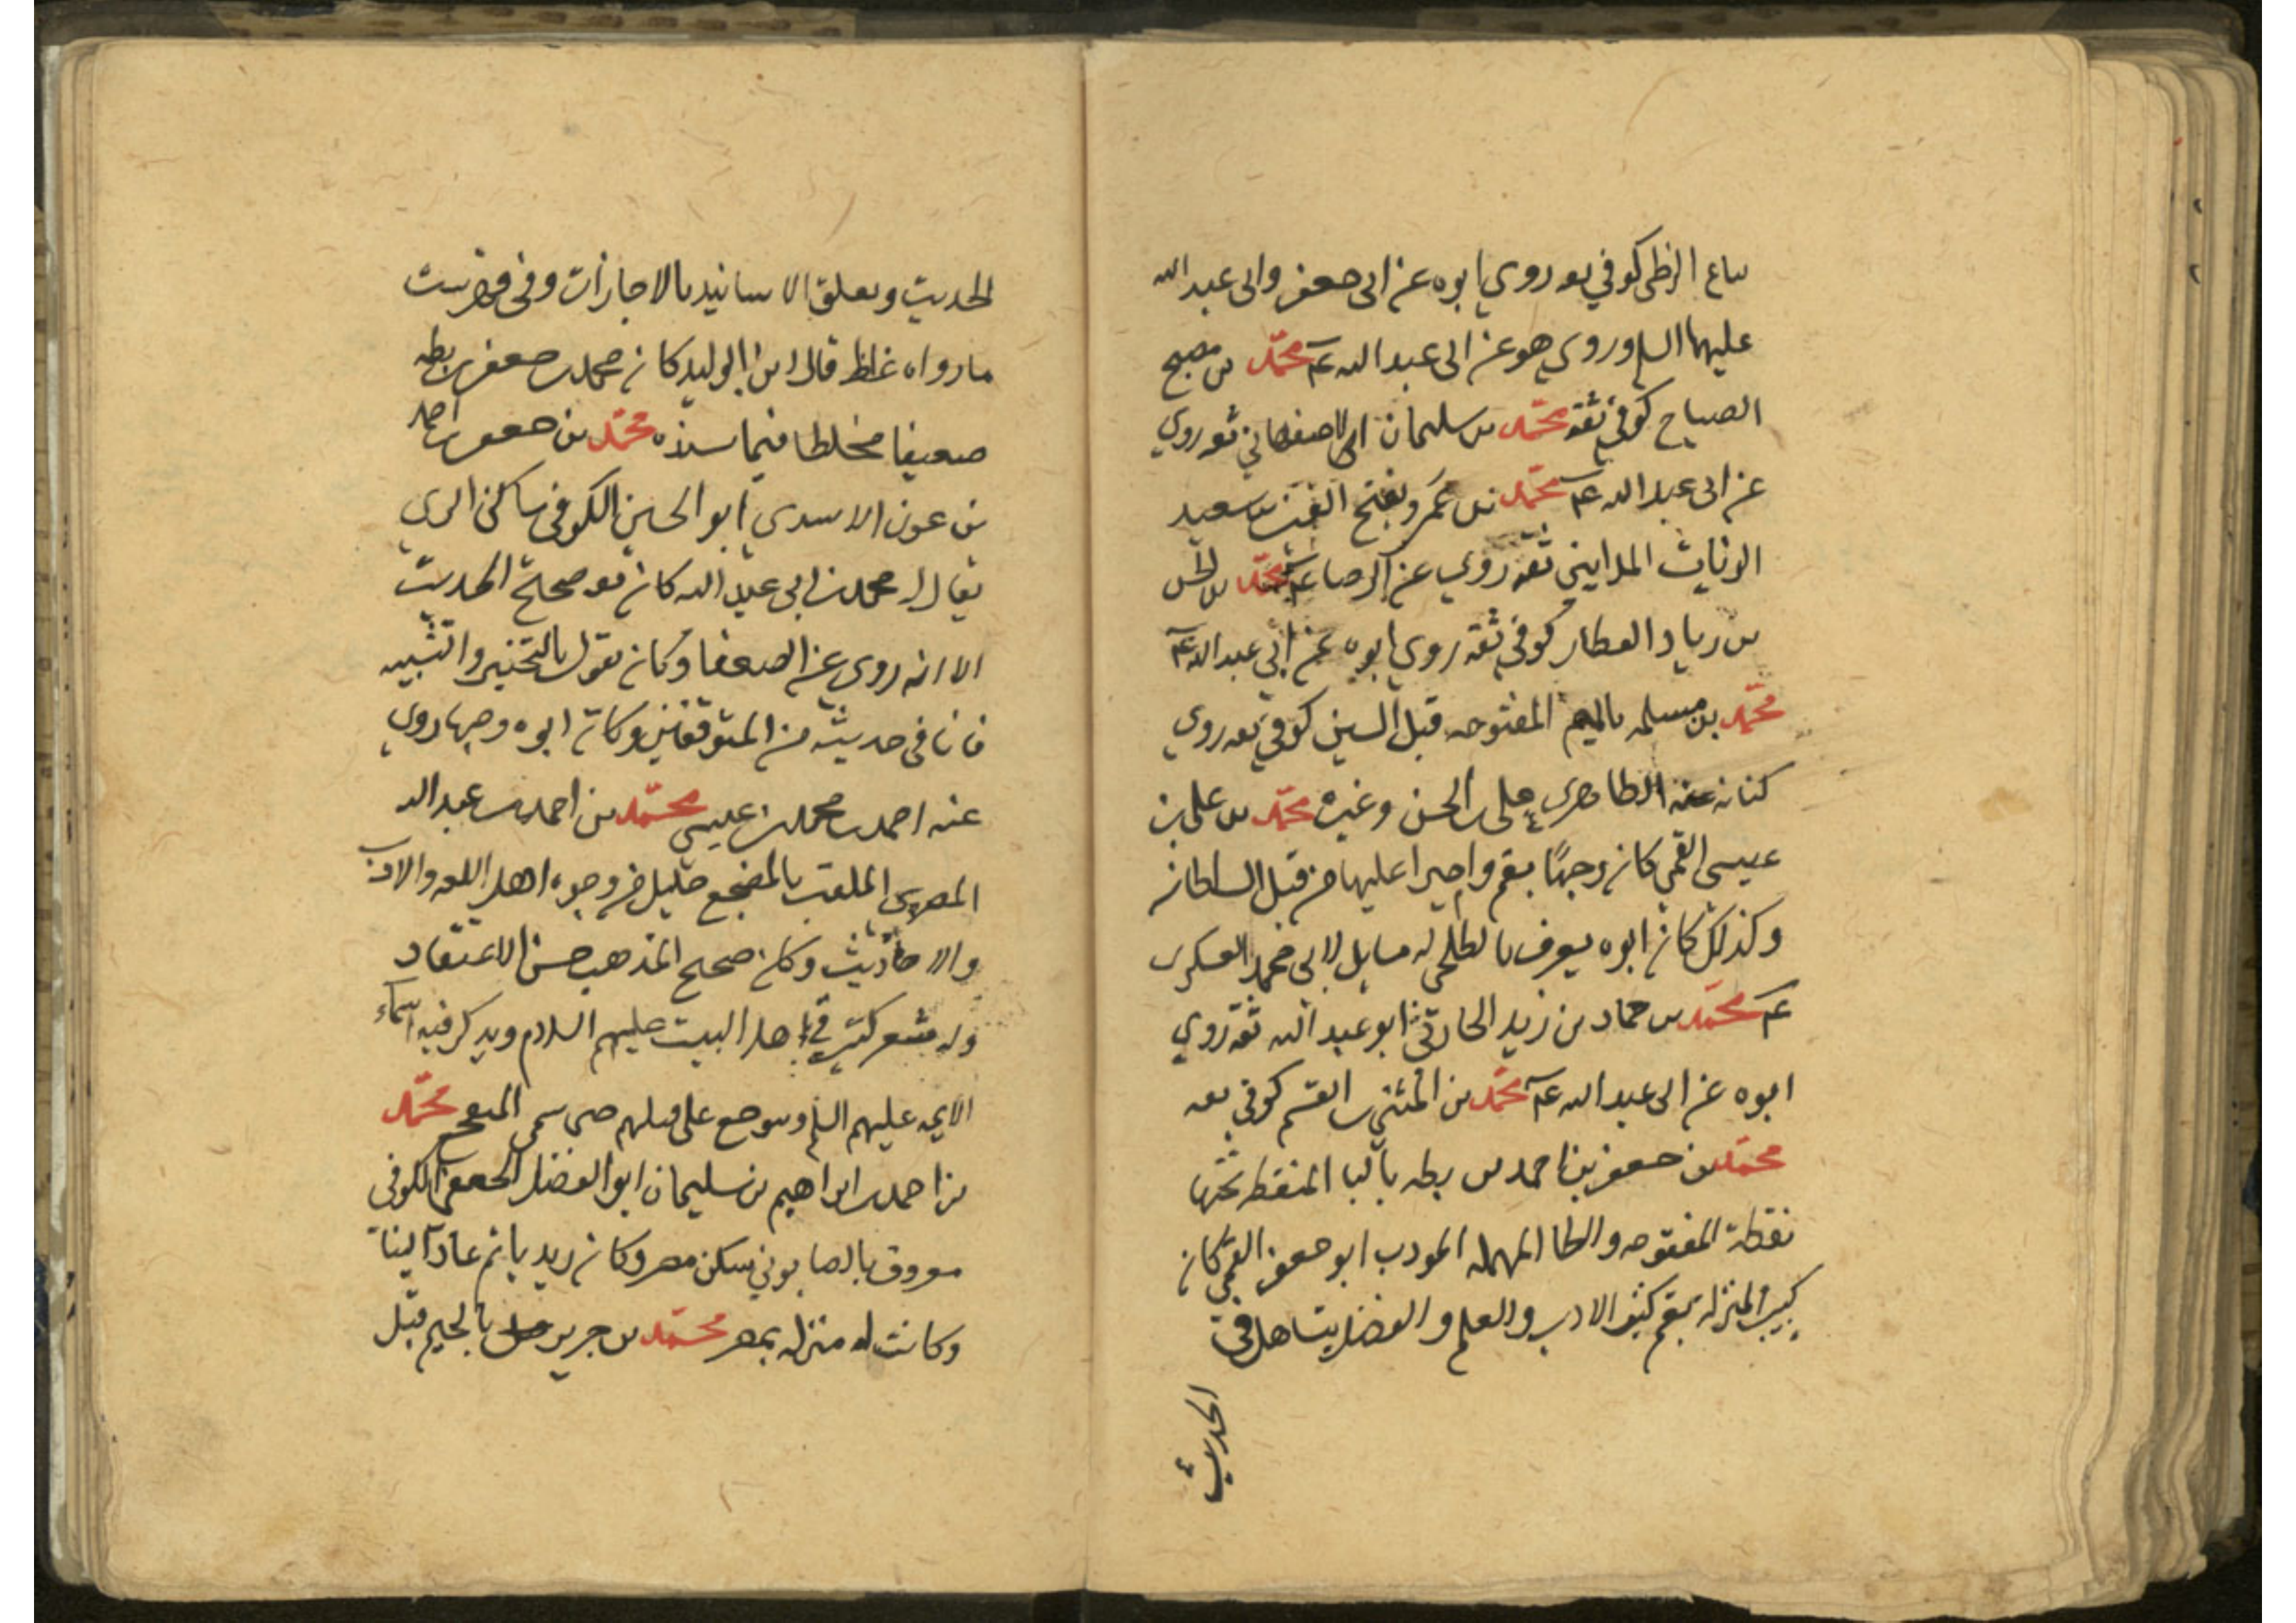 بياع الزطى كوفي ثقه روي ابوه عن ابى جعفر وابى عبد الله
عليهما السلم وروي هو عن ابى عبد الله عم محمد بن مصبح
الصباح كوفي ثقه محمد بن سليمان الاصفهاني ثقه روي
عن ابى عبد الله عم محمد بن عمرو بفتح العين بن سعيد
الزيات المدايني ثقه روي عن الرضا عم محمد بن الحسن
بن زياد العطار كوفي ثقه روي ابوه عن ابي عبد الله عم
محمد بن مسلمه بالميم المفتوحه قبل السين كوفي ثقه روي
كتابه عنه الطاطرى على بن الحسن وغيره محمد بن على بن
عيسى القمي كان وجها بقم واميرا عليها من قبل السلطان
وكذلك كان ابوه يعرف بالطلحى له مسايل لابى محمد العسكرى
عم محمد بن حماد بن زيد الحارثي ابو عبد الله ثقه روي
ابوه عن ابى عبد الله عم محمد بن المثني بن القسم كوفي ثقه
محمد بن جعفر بن احمد بن بطه بالبا المنقطه تحتها
نقطة المفتوحه والطا المهمله المودب ابو جعفر القمي كان
كبير المنزله بقم كثير الادب والعلم والفضل يتساهل في
الحديث
الحديث ويعلق الاسانيد بالاجازات وفى فهرست
ما رواه غلط قال ابن الوليد كان محمد بن جعفر بن بطه
ضعيفا مخلطا فيما يسنده محمد بن جعفر بن احمد
بن عون الاسدي ابو الحسين الكوفى ساكن الري
يقال له محمد بن ابى عبد الله كان ثقه صحيح الحديث
الا انه روى عن الضعفا وكان يقول بالتجبير والتشبيه
فانا فى حديثه من المتوقفين وكان ابوه وجها روي
عنه احمد بن محمد بن عيسى محمد بن احمد بن عبد الله
المصرى الملقب بالمفجع جليل من وجوه اهل اللغه والادب
والاحاديث وكان صحيح المذهب حسن الاعتقاد
وله شعر كثير في اهل البيت عليهم السلام ويذكر فيه اسماء
الايمه عليهم السلم ويتوجع على قتلهم حتى سمى المفجع محمد
بن احمد بن ابراهيم بن سليمان ابو الفضل الجعفى الكوفى
معروف بالصابوني سكن مصر وكان زيديا ثم عاد الينا
وكانت له منزله بمصر محمد بن جرير بالجيم قبل